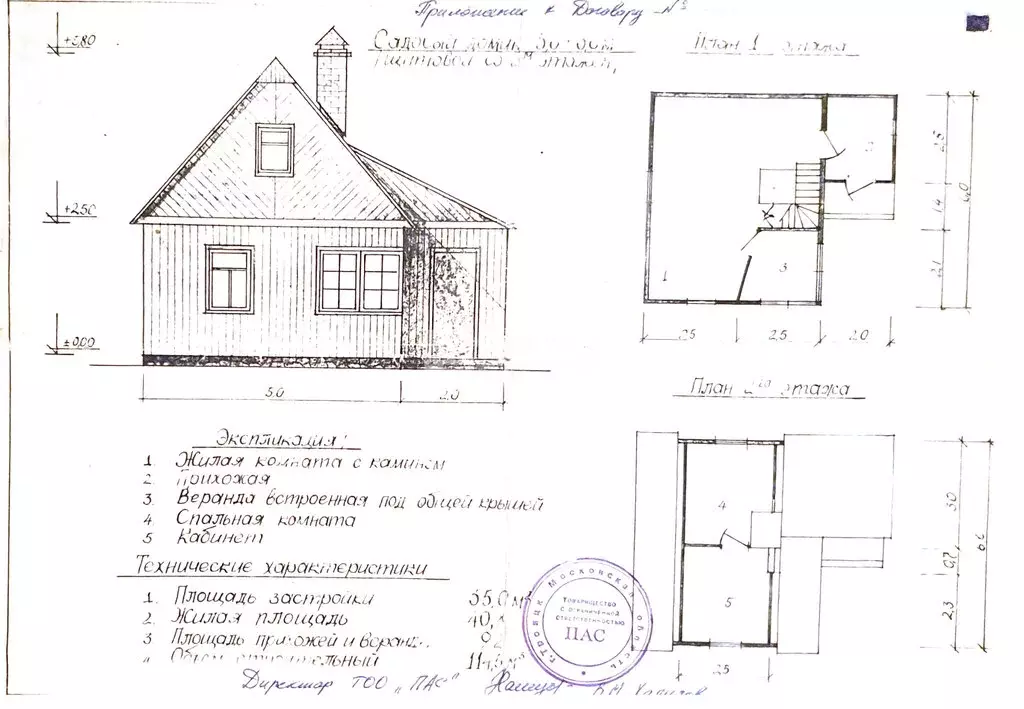 Приложение к Договору №
Садовый домик 5,0×6,0м
щитовой со 2м этажем,
План 1 этажа
+5,80
+2,50
±0,00
5,0
2,0
1
2
3
2,5
1,4
2,1
6,0
2,5
2,5
2,0
План 2го этажа
4
5
3,0
0,7
2,3
2,5
Экспликация:
1. Жилая комната с камином
2. Прихожая
3. Веранда встроенная под общей крышей
4 Спальная комната
5 Кабинет
Технические характеристики
1. Площадь застройки 35,0 м²
2. Жилая площадь 40,
3 Площадь прихожей и веранд
Объем строительный 114,5 м³
г. Троицк Московская область
Товарищество
с ограниченной
ответственностью
ПАС
Директор ТОО "ПАС"